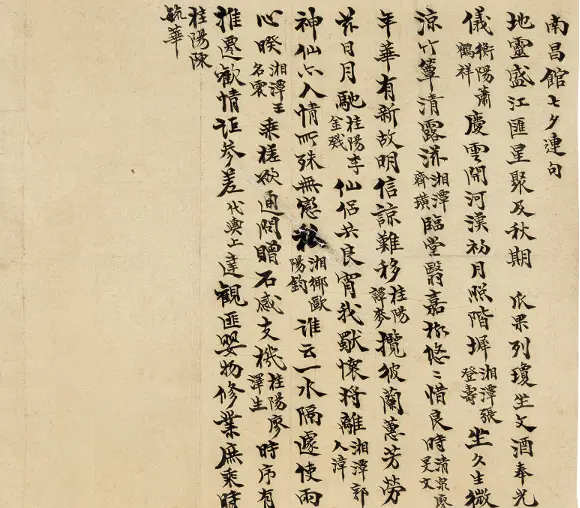 南昌館七夕連句
地靈盛江匯星聚及秋期瓜果列瓊坐文酒奉光
儀衡陽蕭鶴祥慶雲開河漢初月照階墀湘潭張登壽坐久生微
涼竹簟清露滋湘潭齊璜臨堂翳嘉樹悠〻惜良時清泉廖昺文
年華有新故明信諒難移桂陽譚麥攬彼蘭蕙芳勞
茲日月馳桂陽李金戣仙侶共良宵我獨懷將離湘潭郭人漳
神仙亦入情所殊無戀私湘鄉歐陽鈞誰云一水隔遽使兩
心睽湘潭王名震乘槎欲通問贈石感支機桂陽廖澤生時序有
推遷歡情詎參差代輿上達觀匪嬰物修業庶乘時
桂陽陳毓華